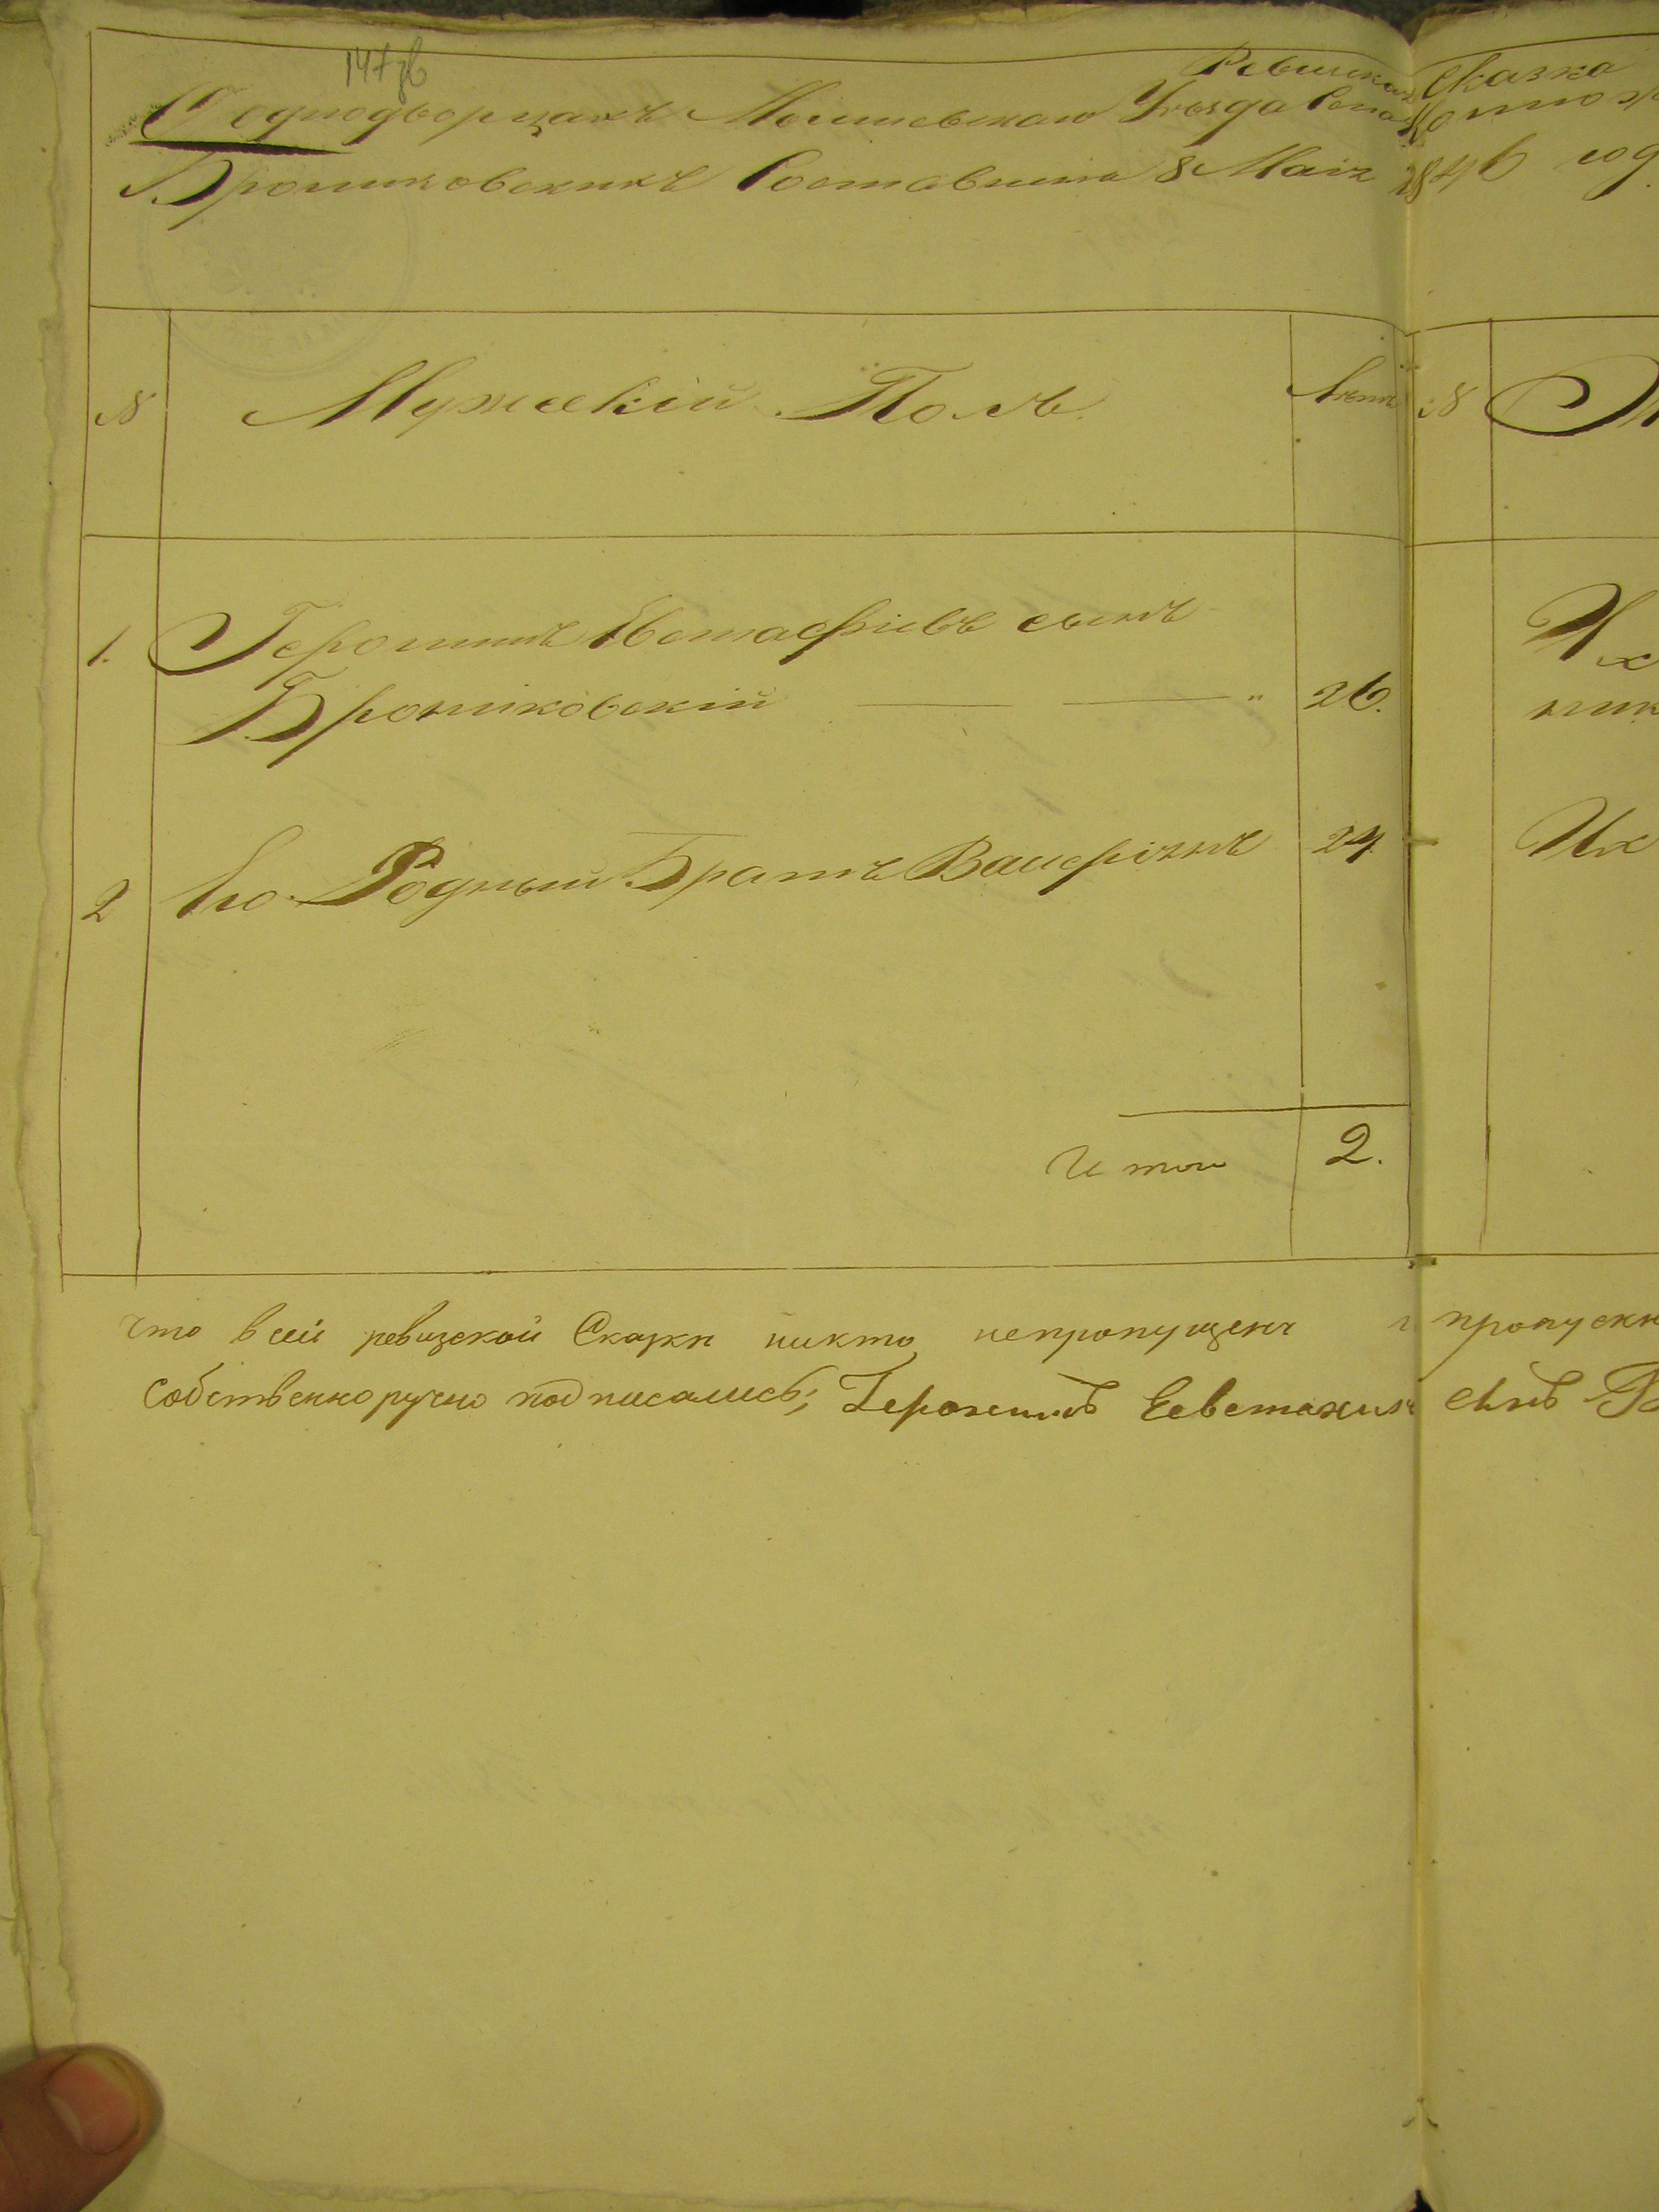 147зв
Ревизская Сказка
О однодворцахъ Могилевскаго Уѣзда Села
Брониковскихъ Составлена 8 Маія 1846 год
№ Мужескій Полъ Лѣта №
1. Геронимъ Евстафіевъ сынъ
Брониковскій — — " 26.
2 Его Родный Братъ 24 Их
Итого 2.
что всей ревизской Сказки никто непропущенъ пропускн
собственноручно подписались; Геронимъ Еевстахиявъ сынъ